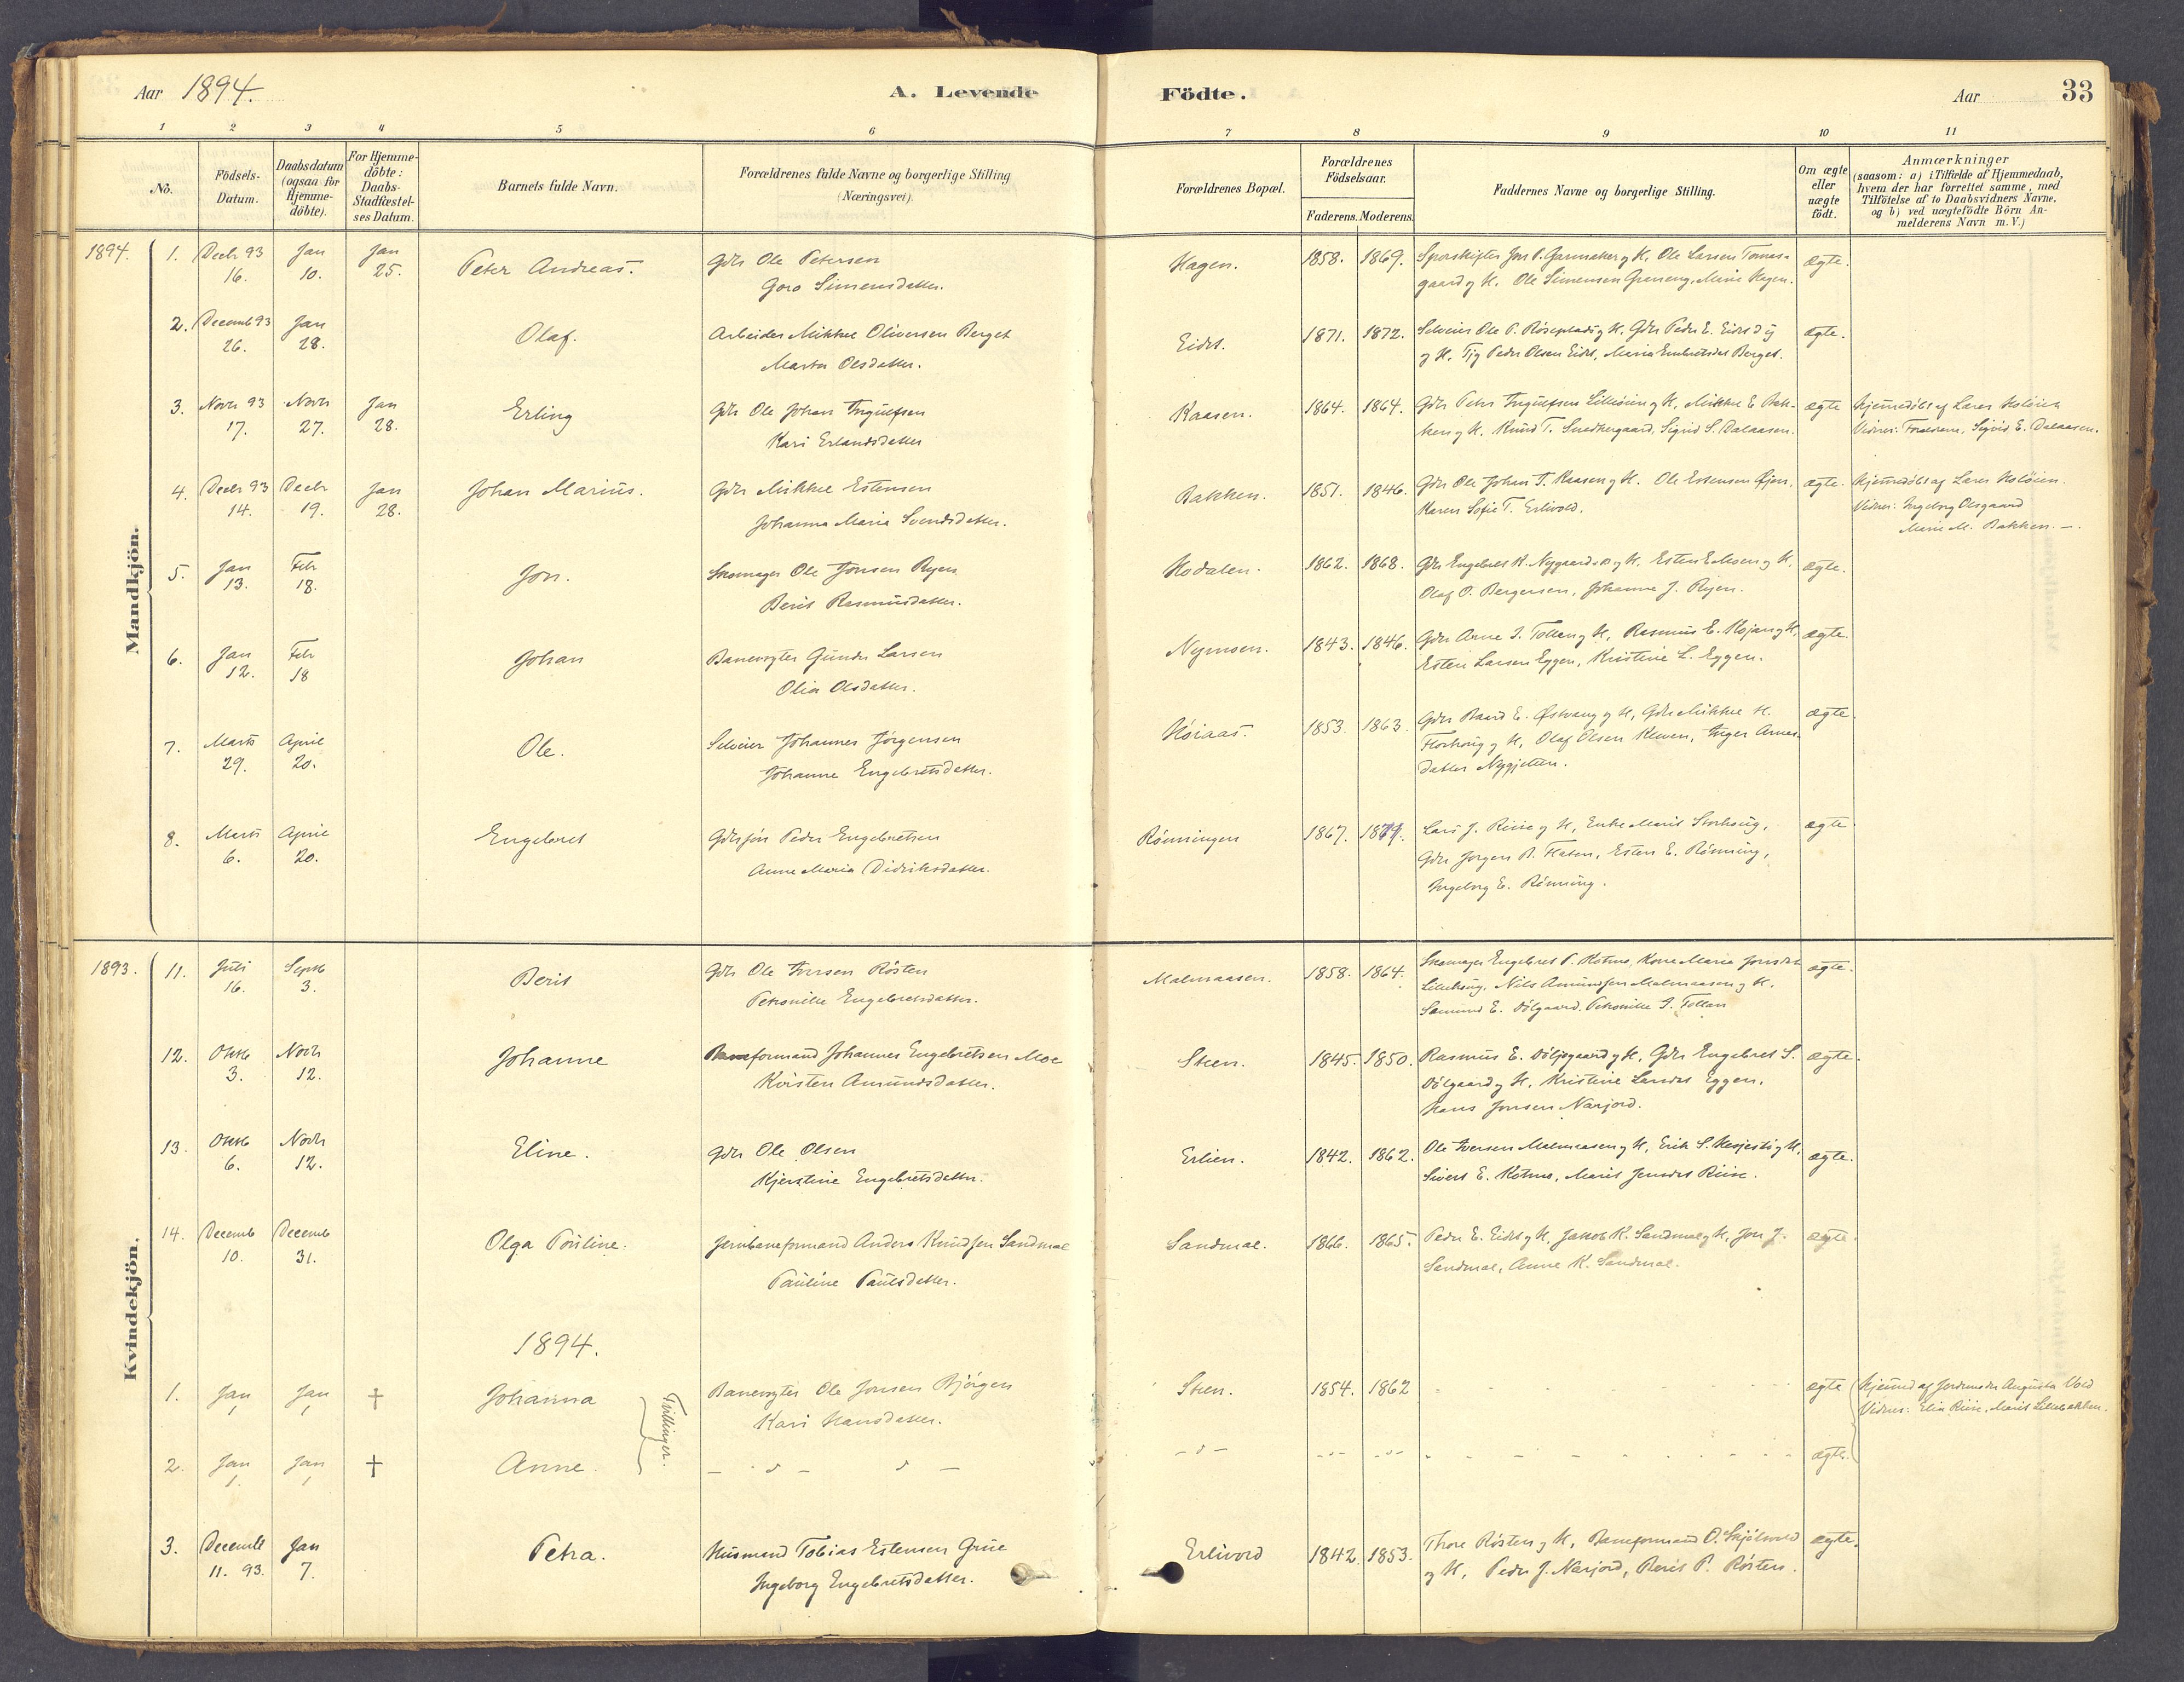 Aar 1894. A. Levende Födte. Aar 33
1 2 3 4 5 6 7 8 9 10 11
No. Födsels-Datum. Daabsdatum (ogsaa for Hjemme-döbte). For Hjemme-döbte: Daabs-Stadfæstel-ses Datum. Barnets fulde Navn. Forældrenes fulde Navne og borgerlige Stilling (Næringsvei). Forældrenes Bopæl. Forældrenes Födselsaar. Faderens. Moderens. Faddernes Navne og borgerlige Stilling. Om ægte eller uægte födt. Anmærkninger (saasom: a) i Tilfælde af Hjemmedaab, hvem der har forrettet samme, med Tilföielse af to Daabsvidners Navne, og b) ved uægtefödte Börn An-melderens Navn m. V.)
Mandkjön.
1894. 1. Decbr 93 Jan Jan Peter Andreas. Gdr Ole Petersen Hagen. 1858. 1869. Jon P. Garmaker og H. Ole Larsen Tomas- ægte.
16. 10. 25. Goro Simensdatter. gaard og H. Ole Simensen Greneng, Marie Hagen.
2. Decemb 93 Jan Olaf. Arbeider Mikkel Oliversen Berget Eidet. 1871. 1872. Selveier Ole P. Rösepladsen og H. Gdr Peder E. Eidet ægte.
26. 28. Marta Olsdatter. og H. Tjg Peder Olsen Eidet, Maria Embretsdat Berget.
3. Novbr 93 Novbr Jan Erling Gdr Ole Johan Ingulfsen Kaasen. 1864. 1864. Gdr Peder Ingulfsen Lilleöien og H, Mikkel E. Bak- ægte Hjemmedöbt af Lars Holöien
17. 27. 28. Kari Erlandsdatter ken og H. Knud T. Snedkergaard, Sigrid S. Dalaasen. Vidner: Forældrene, Sigrid E. Dalaasen.
4. Decbr 93 Decbr Jan Johan Marius. Gdr Mikkel Estensen Bakken. 1851. 1846. Gdr Ole Johan I. Kaasen og H. Ole Estensen Öien, ægte. Hjemmedöbt af Lars Holöien.
14. 19. 28. Johanna Maria Svendsdatter. Karen Sofie T. Erlivold. Vidner: Ingeborg Olsgaard
Marie M. Bakken.
5. Jan Febr Jon. Skomager Ole Jonsen Ryen Hodalen. 1862. 1868. Gdr Engebret K. Nygaard og H. Esten E. Moen og H. ægte.
13. 18. Berit Rasmusdatter. Olaf O. Bergersen, Johanne J. Ryen.
6. Jan Febr Johan Banevogter Gunder Larsen Nymoen. 1843. 1846. Gdr Arne I. Tollan og H, Rasmus E. Kojan og H, ægte.
12. 18 Olia Olsdatter. Esten Larsen Eggen, Kristine L. Eggen.
7. Marts April Ole. Selveier Johannes Jörgensen Höiaas. 1853. 1863. Gdr Baard E. Østvang og H, Gdr Mikkel H. ægte.
29. 20. Johanne Engebretsdatter. og H, Olaf Olsen Kleven, Inger Arnes-
datter Nygjelten.
8. Marts April Engebret Gdrsön Peder Engebretsen Rönningen 1867. 1871. Lars J. Riise og H, Enke Marit Storhaug, ægte
6. 20. Anne Maria Didriksdatter. Gdr Jörgen B. Flaten, Esten E. Rönning,
Ingeborg E. Rönning.
Kvindekjön.
1893. 11. Juli Septb Berit Gdr Ole Iversen Rösten Malmaasen. 1858. 1864. Skomager Engebret P. Kotmo, Kone Maria Jonsdat ægte.
16. 3. Petronille Engebretsdatter. Lillehaug, Nils Amundsen Malmaasen og H.
Samund E. Dölgaard, Petronille I. Tollan
12. Oktb Novbr Johanne Baneformand Johannes Engebretsen Moe Steen. 1845. 1850. Rasmus E. og H, Gdr Engebret S. ægte.
3. 12. Kirsten Amundsdatter. Dölgaard og H, Kristine Larsdat Eggen,
Hans Jonsen Narjord.
13. Oktb Novbr Eline. Gdr Ole Olsen Erlien. 1842. 1862. Ole Iversen Malmaasen og H, Erik S. og H, ægte.
6. 12. Kjerstine Engebretsdatter. Sivert E. Kotmo, Marit Jensdat Riise.
14. Decemb Decemb Olga Pauline. Jernbaneformand Anders Knudsen Sandmæl Sandmæl. 1866. 1865. Peder E. Eidet og H, Jakob K. Sandmæl og H, Jon J. ægte.
10. 31. Pauline Paulsdatter. Sandmæl, Anne K. Sandmæl.
1894.
1. Jan Jan † Johanna Tvillinger. Banevogter Ole Jonsen Björgen Steen. 1854. 1862 ægte Hjemmed af Jordmoder Augusta Vold
1 1 Kari Hansdatter. Vidner: Elia Riise, Marit Lillebakken.
2. Jan Jan † Anne. ægte.
1. 1
3. Decemb Jan Petra. Husmand Tobias Estensen Grue Erlivold 1842. 1853. Thore Rösten og H, Baneformand O. Skjölsvold ægte.
11. 93. 7. Ingeborg Engebretsdatter. og H, Peder J. Narjord, Berit P. Rösten.